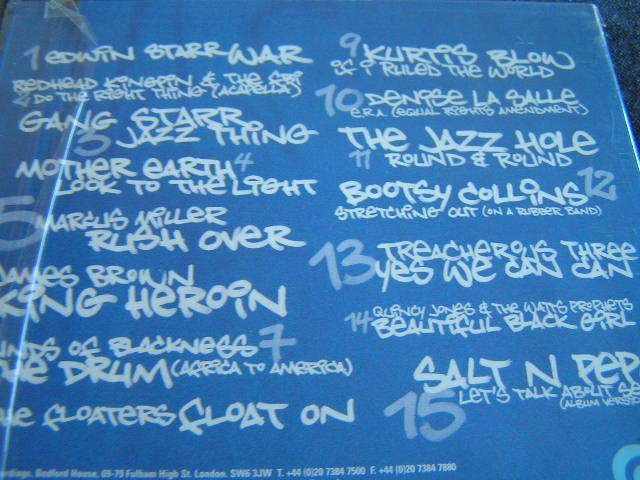 1 EDWIN STARR WAR
REDHEAD KINGPIN & THE FBI
2 DO THE RIGHT THING (ACAPELLA)
GANG STARR
3 JAZZ THING
MOTHER EARTH 4
LOOK TO THE LIGHT
5 MARCUS MILLER
RUSH OVER
JAMES BROWN
KING HEROIN
UNDS OF BLACKNESS 7
HE DRUM (AFRICA TO AMERICA)
HE FLOATERS FLOAT ON
9 KURTIS BLOW
IF I RULED THE WORLD
10 DENISE LA SALLE
E.R.A. (EQUAL RIGHTS AMENDMENT)
THE JAZZ HOLE
11 ROUND & ROUND
BOOTSY COLLINS 12
STRETCHING OUT (ON A RUBBER BAND)
13 TREACHEROUS THREE
YES WE CAN CAN
14 QUINCY JONES & THE WATTS PROPHETS
BEAUTIFUL BLACK GIRL
SALT N PEP
15 LET'S TALK ABOUT SE
(ALBUM VERSIO
ordings, Bedford House, 69-79 Fulham High St. London. SW6 3JW T. +44 (0)20 7384 7500 F. +44 (0)20 7384 7880